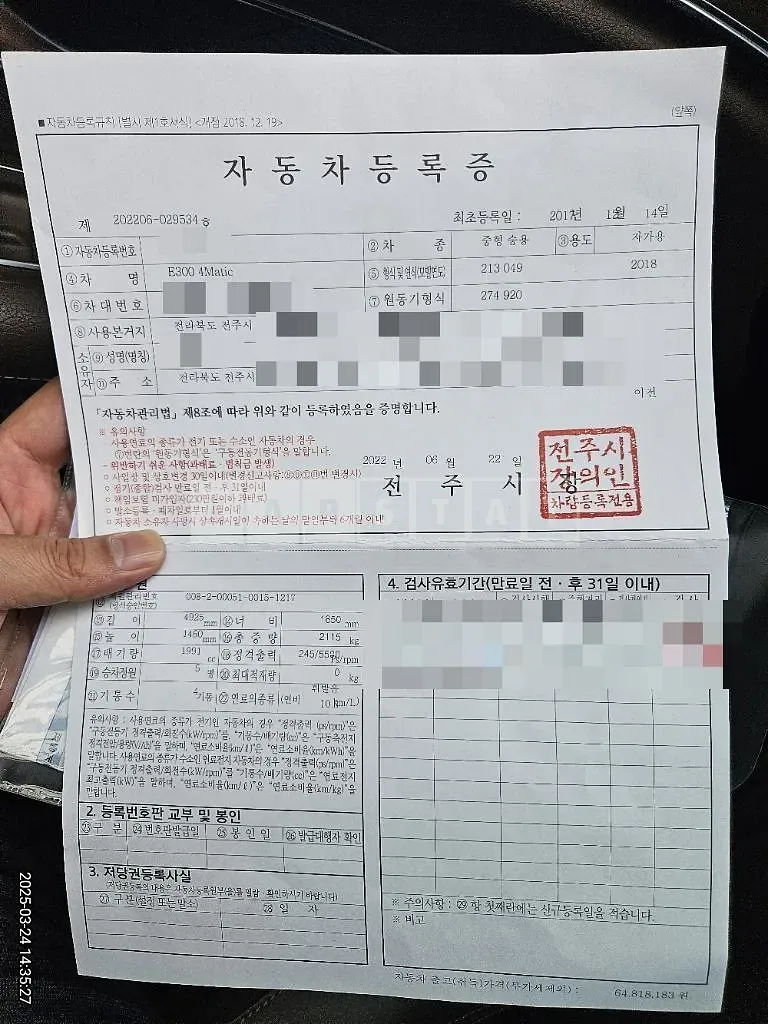 ■자동차등록규칙 [별지 제1호서식] <개정 2018. 12. 19>
(앞쪽)
자 동 차 등 록 증
제 202206-029534 호
최초등록일 : 14일
① 자동차등록번호
② 차 종 중형 승용 ③용도 자가용
④ 차 명 E300 4Matic
⑤ 형식 및 연식(모델연도) 213 049 2018
⑥ 차 대 번 호
⑦ 원동기형식 274 920
⑧ 사용본거지 전라북도 전주시
소유자 ⑨ 성명(명칭)
주 소 전라북도 전주시
이전
「자동차관리법」 제8조에 따라 위와 같이 등록하였음을 증명합니다.
※ 유의사항
사용연료의 종류가 전기 또는 수소인 자동차의 경우
⑦번란의 '원동기형식'은 '구동전동기형식'을 말합니다.
- 위반하기 쉬운 사항(과태료 · 범칙금 발생)
○ 사업장 및 상호변경 30일이내
○ 정기(종합)검사 만료일 전 · 후 31일이내
○ 책임보험 미가입자(230만원이하 과태료)
○ 말소등록 · 폐차일로부터 1월이내
○ 자동차 소유자 사망시 상속개시일이 속하는 달의 말일부터 6개월 이내
2022 년 06 월 22 일
전 주 시 장
전주시
장의인
차량등록전용
원
008-2-00051-0015-1217
길 이 4925mm 너 비 1850 mm
높 이 1460mm 총 중 량 2115 kg
배 기 량 1991 cc 정격출력 245/5500 ps/rpm
승차정원 5 명 최대적재량 0 kg
기 통 수 4기통 연료의종류 (연비 휘발유 10 km/L)
유의사항 : 사용연료의 종류가 전기인 자동차의 경우 "정격출력 (ps/rpm)"은
"구동전동기 정격출력/회전수(kW/rpm)"를, "기통수/배기량(cc)"은 "구동축전지
정격전압/용량(V/Ah)"을 말하며, "연료소비율(km/ℓ)"은 "연료소비율(km/kWh)"을
말합니다. 사용연료의 종류가 수소인 위료전지 자동차의 경우 "정격출력(ps/rpm)"은
"구동전동기 정격출력/회전수(kW/rpm)"를 "기통수/배기량(cc)"은 "연료전지
최고출력(kW)"을 말하며, "연료소비율(km/ℓ)"은 "연료소비율(km/kg)"을
말합니다.
2. 등록번호판 교부 및 봉인
㉓구 분 ㉔번호판발급일 ㉕봉 인 일 ㉖발급대행자 확인
3. 저당권등록사실
(저당권등록의 내용은 자동차등록원부(을)를 열람 · 확인하시기 바랍니다)
㉗ 구 분(설정 또는 말소) ㉘ 일 자
4. 검사유효기간(만료일 전 · 후 31일 이내)
※ 주의사항 : ㉙ 항 첫째란에는 신규등록일을 적습니다.
※ 비고
자동차 출고(취득)가격(부가세제외) : 64,818,183 원
2025-03-24 14:35:27